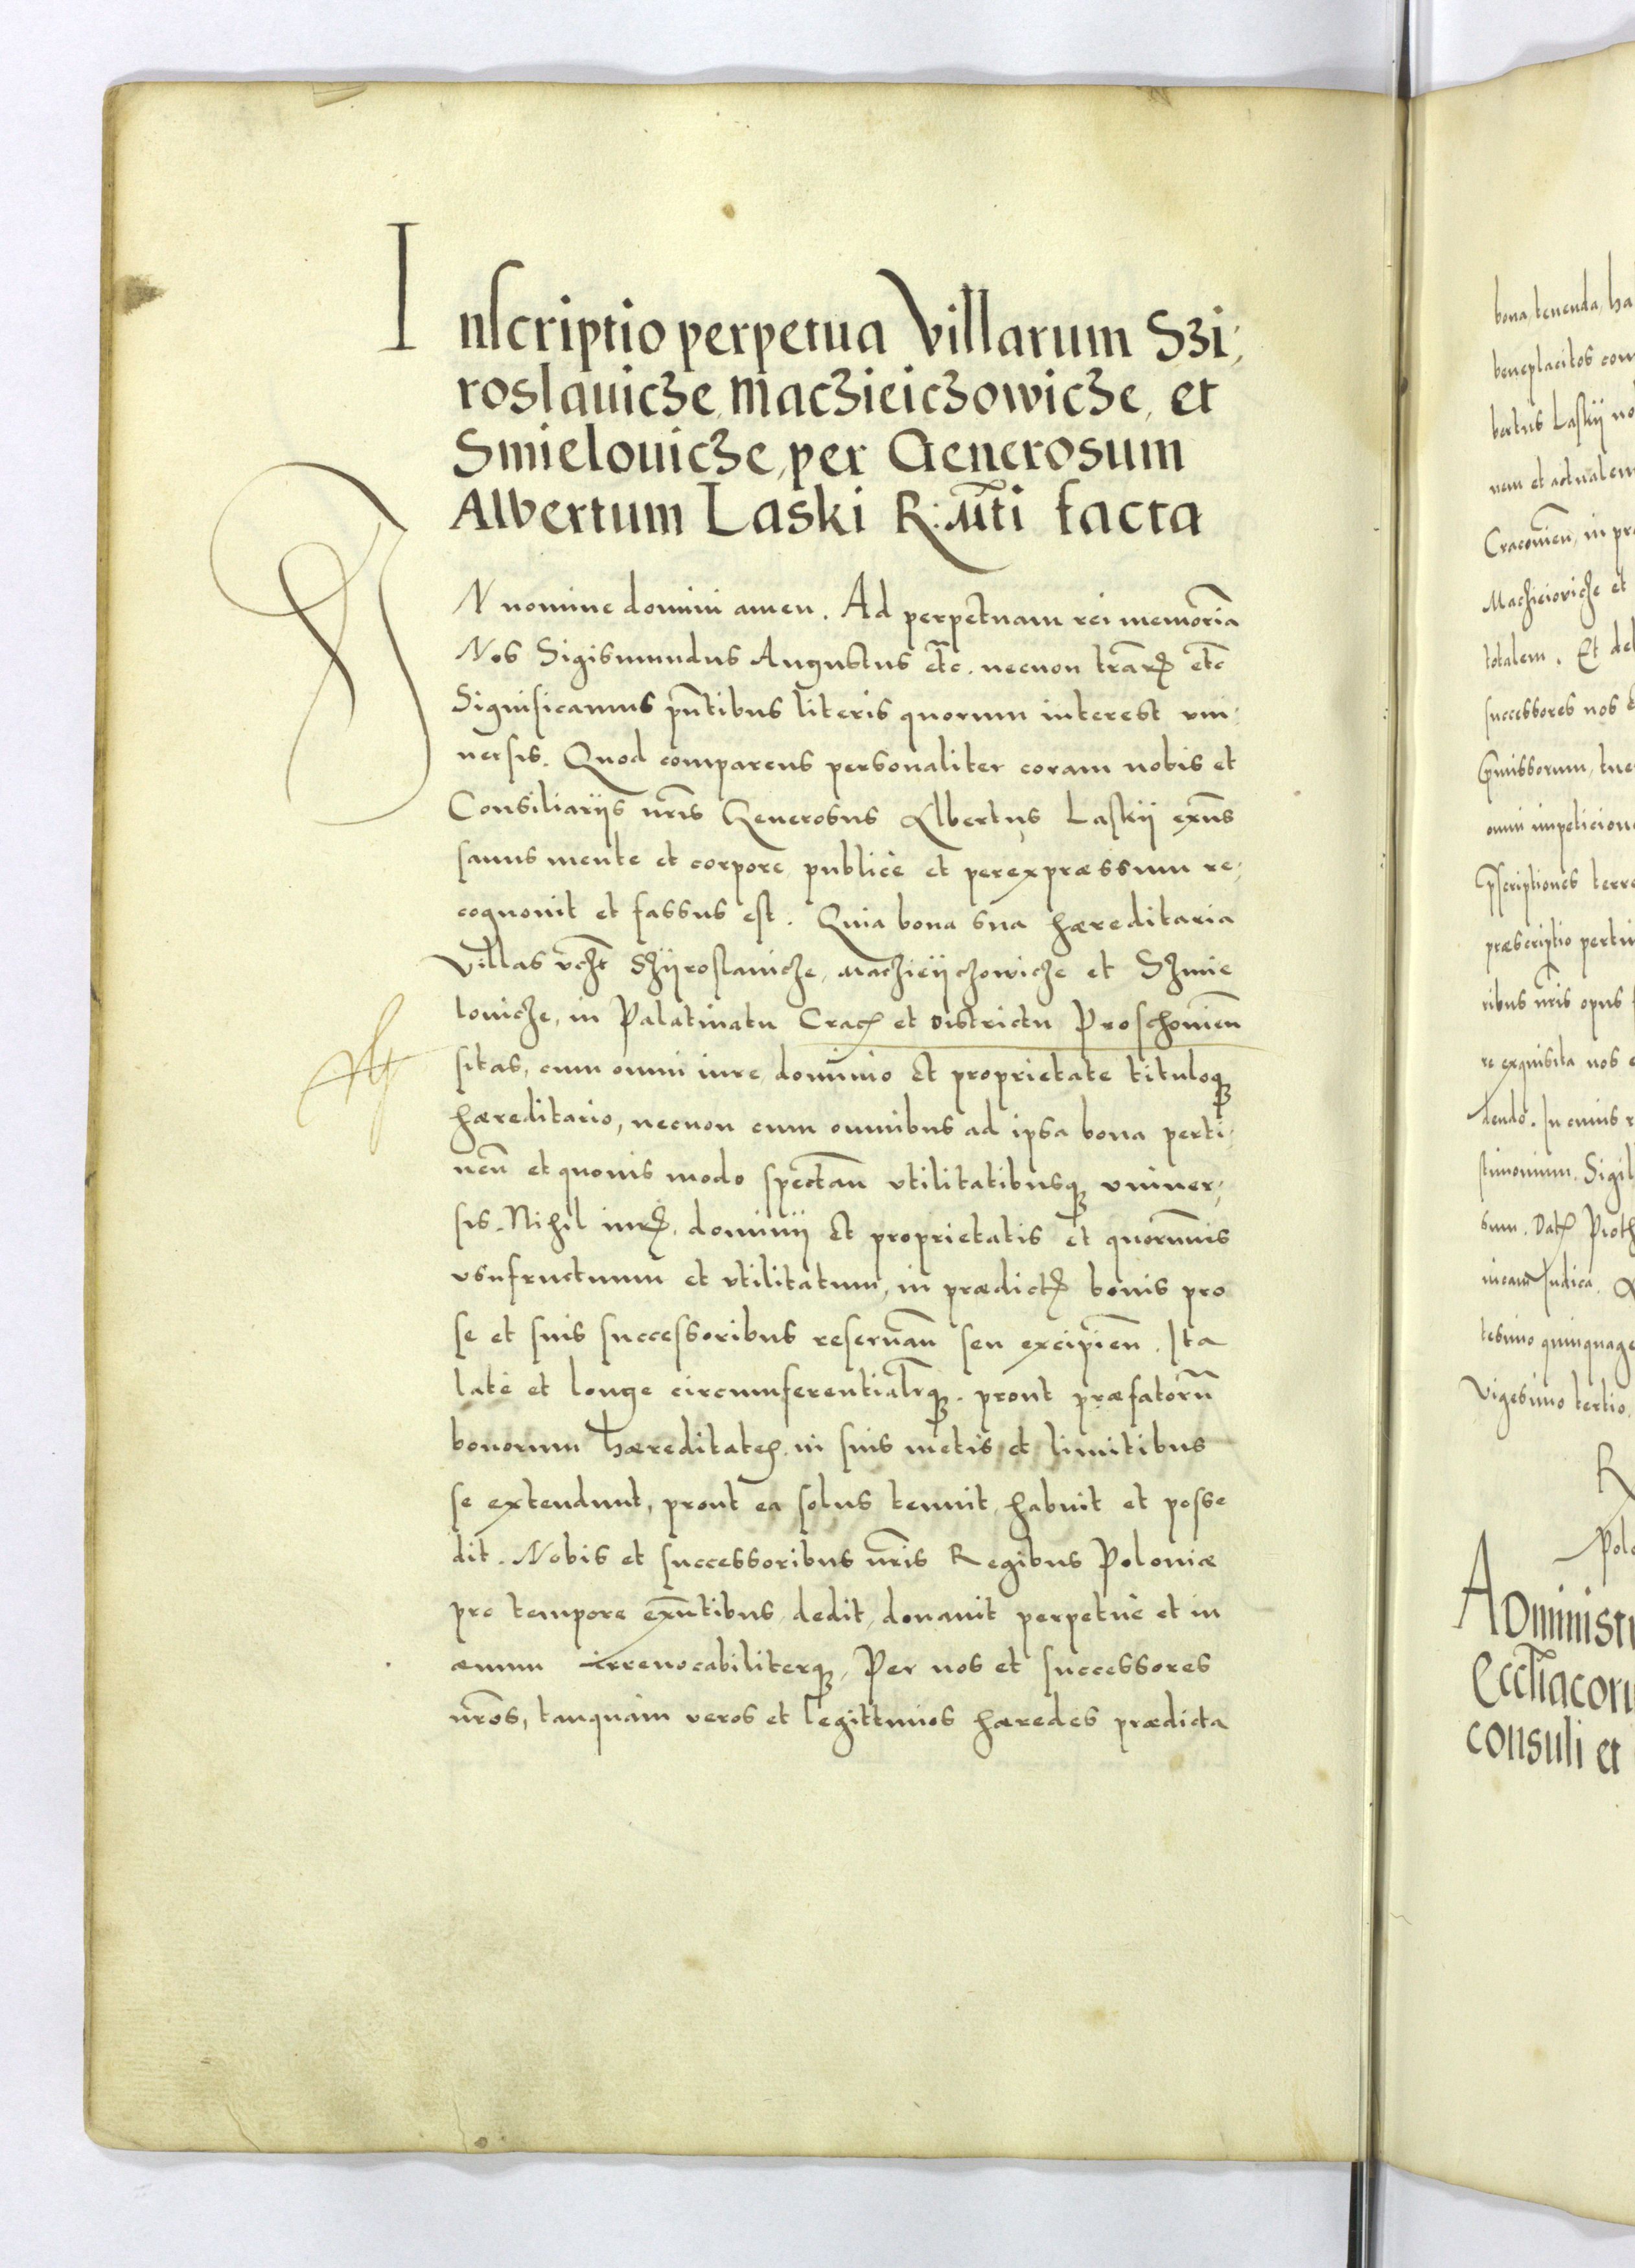 Inscriptio perpetua Villarum Szi,
roslauicze, Maczieiczowicze, et
Smielouicze, per Generosum
Albertum Laski R: Mti facta
IN nomine domini amen. Ad perpetuam rei memoria
Nos Sigismundus Augustus etc. necnon trar etc
Significamus pntibus literis quorum interest vni,
uersis. Quod comparens personaliter coram nobis et
Consiliariis nris Generosus Albertus Laskij exns
sanus mente et corpore, publicè et per expraessum re,
cognouit et fassus est. Quia bona sua haereditaria
Villas vczt Szyroslauicze, Maczieiiczowicze et Szmie
louicze, in Palatinatu Crac et districtu Proschouien
sitas, cum omni iure, dominio et proprietate tituloq
haereditario, necnon cum omnibus ad ipsa bona perti,
nen et quouis modo spectan vtilitatibusq vniuer,
sis. Nihil iur, dominij et proprietatis et quorumuis
vsufructuum et vtilitatum, in praedict bonis pro
se et suis successoribus reseruan seu excipien. Ita
latè et longe circumferentialrq. prout praefatoru
bonorum haereditates in suis metis et limitibus
se extendunt, prout ea solus tenuit, habuit et posse
dit. Nobis et successoribus nris Regibus Poloniae
pro tempore exntibus, dedit, donauit perpetuè et in
aeuum irreuocabiliterq, Per nos et successores
nros, tanquàm veros et legittimos haeredes praedicta
bona, tenenda, ha
beneplacitos con
bertus Laskij no
rem et actualem
Cracouien, in pr
Maczieiovicze et
totalem. Et de
successores nos
omni impeticion
praescriptio perti
ribus nris opus
re exquisita nos
dendo. In cuius
stimonium. Sigil
sum. Dat Piot
nicam Iudica.
tesimo quinquage
Vigesimo tertio.
R
Polo
Administr
Eccliacor
consuli et